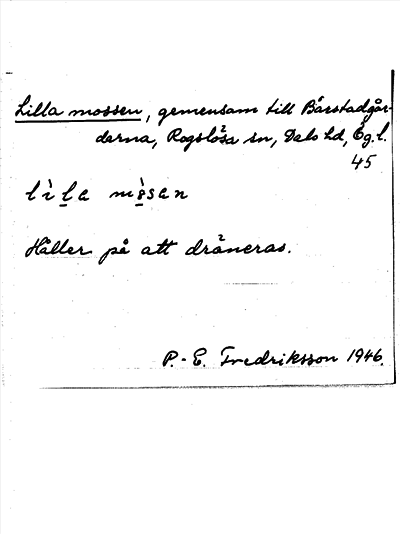 Lilla mossen, gemensam till Bårstadgår-
darna, Rogslösa sn, Dals hd, Ög. l.
45
Håller på att dräneras.
P.-E. Fredriksson 1946.